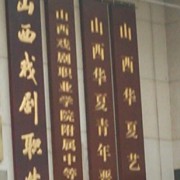 山西戏剧职业
山西戏剧职业学院附属中等
山西华夏青年晋
山西华夏艺